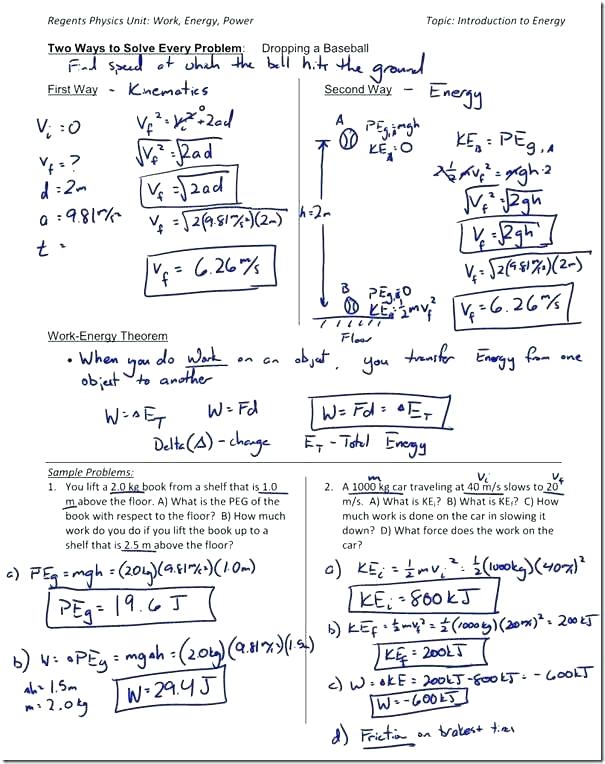 Regents Physics Unit: Work, Energy, Power
Topic: Introduction to Energy
Two Ways to Solve Every Problem: Dropping a Baseball
Find speed at which the ball hits the ground
First Way - Kinematics
Vi = 0
Vf = ?
d = 2m
a = 9.81 m/s²
t =
Vf² = Vi² + 2ad
0
√Vf² = √2ad
Vf = √2ad
Vf = √2(9.81 m/s²)(2m)
Vf = 6.26 m/s
Second Way - Energy
A
PEg = mgh
KE_A = 0
h = 2m
B
PEg,B = 0
KE_B = ½mVf²
Floor
KE_B = PEg,A
2 ½ mVf² = mgh · 2
√Vf² = √2gh
Vf = √2gh
Vf = √2(9.81 m/s²)(2m)
Vf = 6.26 m/s
Work-Energy Theorem
• When you do work on an object, you transfer Energy from one
object to another
W = ΔE_T W = Fd W = Fd = ΔE_T
Delta (Δ) - change E_T - Total Energy
Sample Problems:
1. You lift a 2.0 kg book from a shelf that is 1.0
m above the floor. A) What is the PEG of the
book with respect to the floor? B) How much
work do you do if you lift the book up to a
shelf that is 2.5 m above the floor?
a) PEg = mgh = (2.0kg)(9.81 m/s²)(1.0m)
PEg = 19.6 J
b) W = ΔPEg = mgΔh = (2.0kg)(9.81 m/s²)(1.5m)
Δh = 1.5m
m = 2.0kg
W = 29.4 J
m Vi Vf
2. A 1000 kg car traveling at 40 m/s slows to 20
m/s. A) What is KEi? B) What is KEf? C) How
much work is done on the car in slowing it
down? D) What force does the work on the
car?
a) KEi = ½mVi² = ½(1000kg)(40 m/s)²
KEi = 800kJ
b) KEf = ½mVf² = ½(1000kg)(20 m/s)² = 200kJ
KEf = 200kJ
c) W = ΔKE = 200kJ - 800kJ = -600kJ
W = -600kJ
d) Friction on brakes+ tires